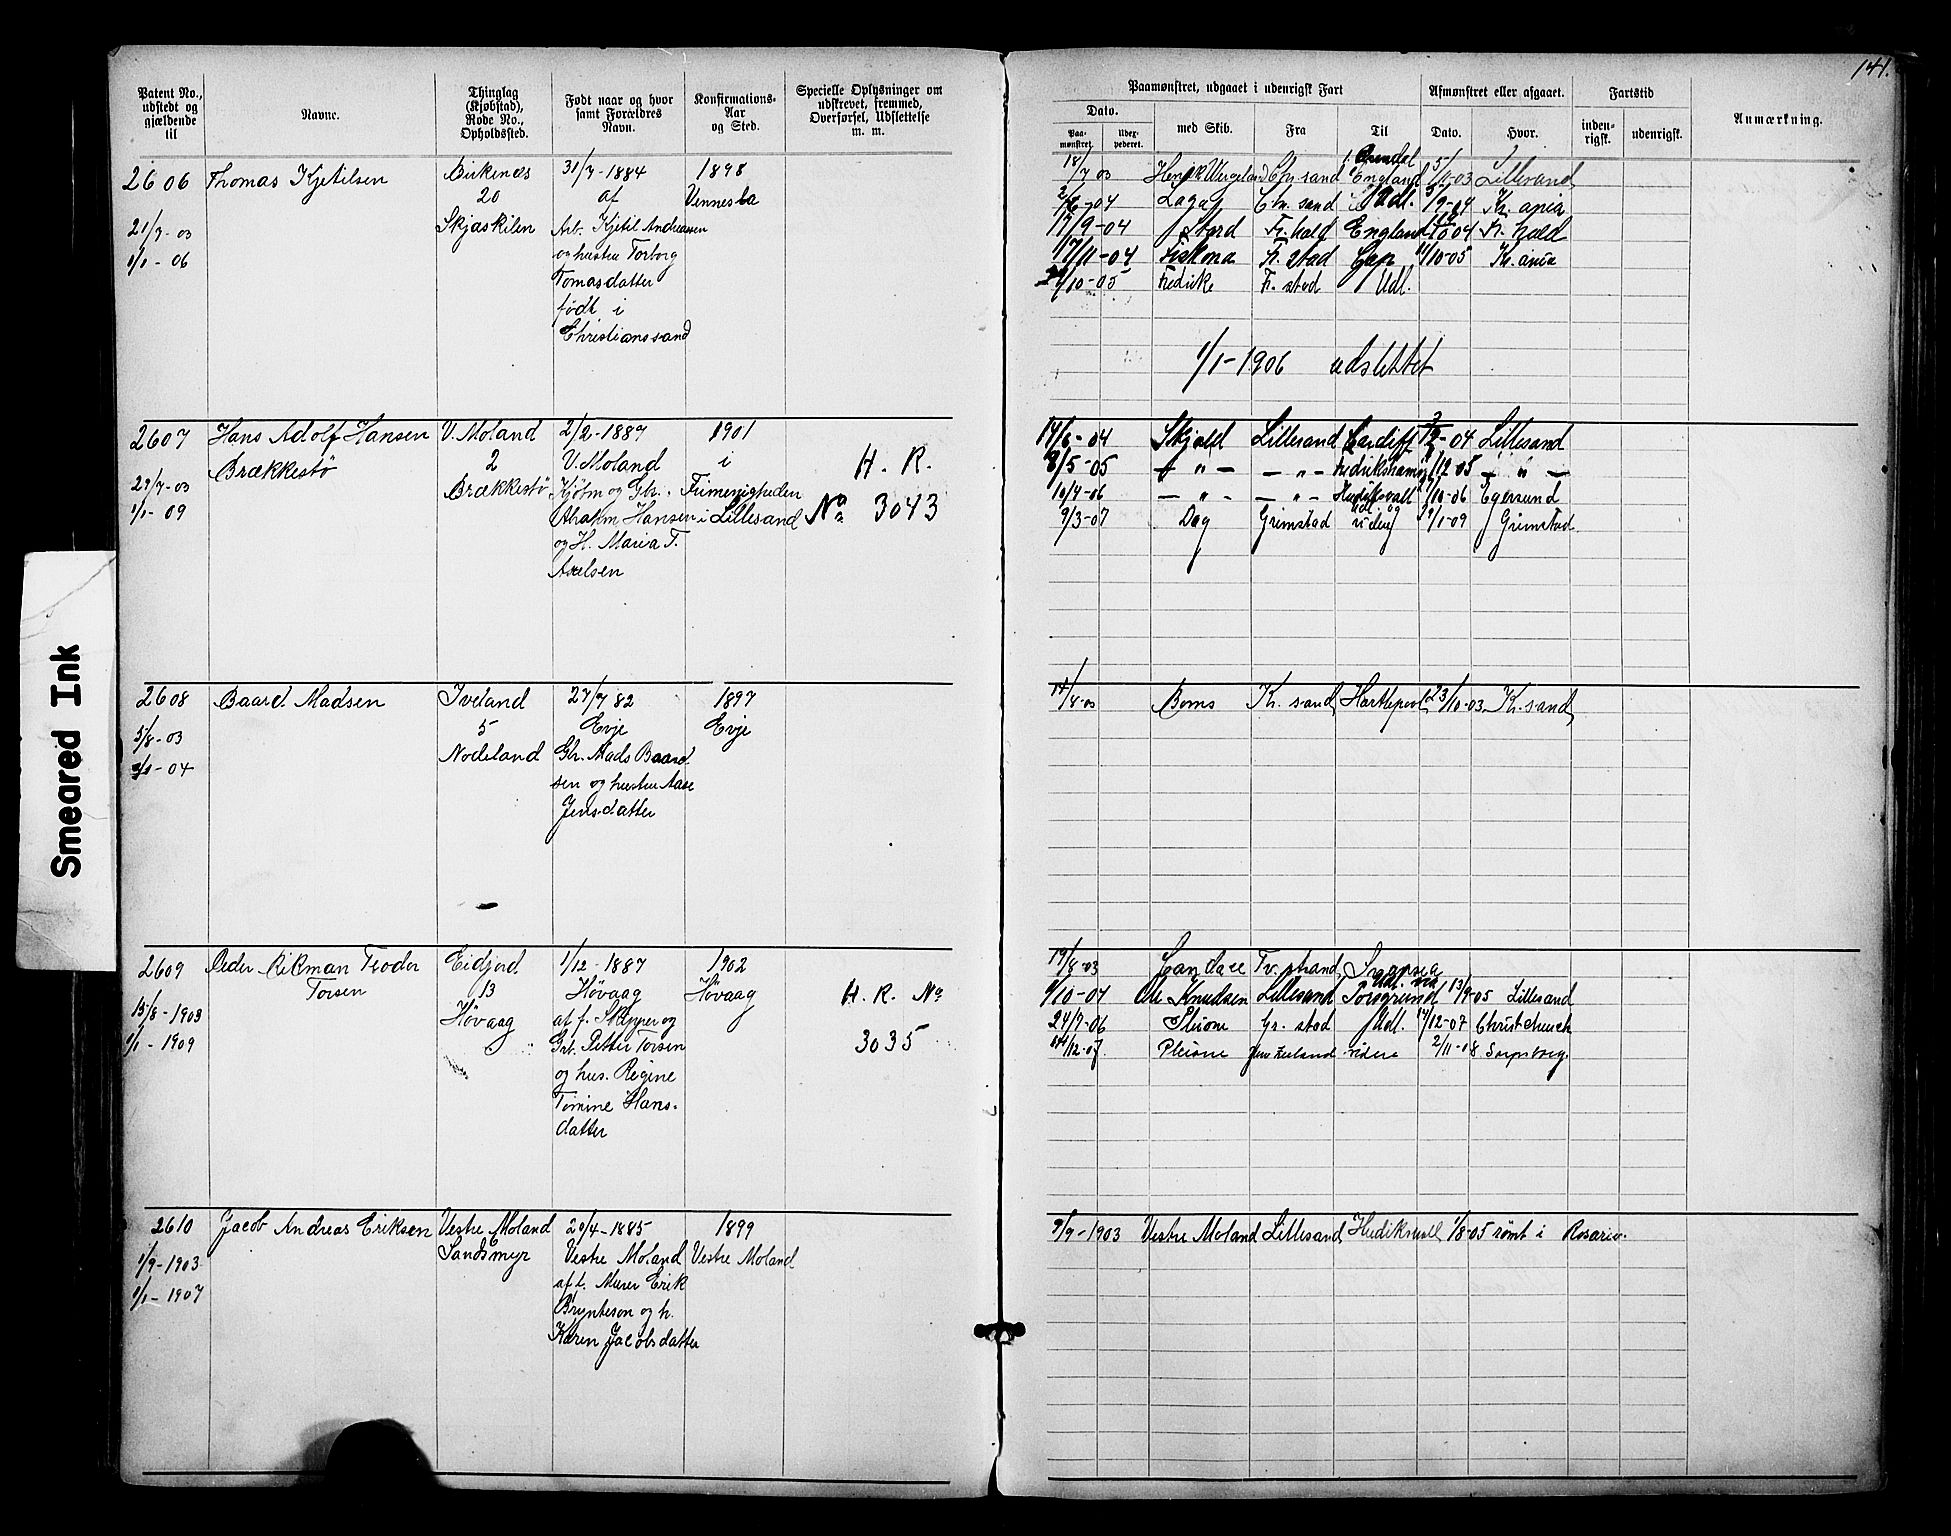 141.
Patent No., udstedt og gjældende til
Navne.
Thinglag (Kjøbstad), Rode No., Opholdssted.
Født naar og hvor samt Forældres Navn.
Konfirmations-Aar og Sted.
Specielle Oplysninger om udskrevet, fremmed, Overførsel, Udslettelse m. m.
Paamønstret, udgaaet i udenrigsk Fart
Dato.
Paa-mønstret.
Udex-pederet.
med Skib.
Fra
Til
Afmønstret eller afgaaet.
Dato.
Hvor.
Fartstid
inden-rigsk.
udenrigsk.
Anmærkning.
2606 Thomas Kjetilsen Birkenes 31/7-1884 1898
20 af Vennesla
21/7-03 Skjaskilen Arb. Kjetil Andreassen
1/1-06 og hustru Torborg
Tomasdatter
født i
Christianssand
18/7 03 Henrik Wergeland Chr.sand Arendal England 5/11-03 Lillesand
Lagaf Chr. sand Udl. Kr. ania
17/9-04 Stord Fr.hald England 04 Fr. hald
17/11-04 Fiskma Fr. stad Cap 11/10-05 Kr. ania
/10-05 Fedicke Fr. stad Udl.
1/1-1906 udslettet
2607 Hans Adolf Hansen V. Moland 2/2-1887 1901
Brækkestø 2 V. Moland i H. R.
29/7-03 Brækkestø Kjøbm og Gbr. Frimenigheden No 3043
1/1-09 Abrahm Hansen i Lillesand
og H. Maria T.
Axelsen
14/6-04 Skjold Lillesand Cardiff -04 Lillesand
8/5-05 — „ — — „ — Fredrikshamn /12-05 — „ —
10/4-06 — „ — — „ — Hudiksvall /10-06 Egersund
9/3-07 Dag Grimstad Udl og videre /1-09 Grimstad
2608 Baard Madsen Iveland 27/7 82 1897
5 Evje Evje
5/8-03 Nodeland Gbr. Mads Baard-
1/1-04 sen og hustru Aase
Jensdatter
14/8-03 Boms Kr. sand Hartlepool 23/10-03 Kr. sand
2609 Peder Rikman Teodor Eidjord 1/12-1887 1902
Torsen 13 Høvaag Høvaag H. R. No
15/8-1903 Høvaag af f. Skipper og
1/1-1909 Gbr. Petter Torsen 3035
og hus. Regine
Tomine Hans-
datter
19/8-03 Candace Tv.strand Swansea
9/10-04 Ole Knudsen Lillesand Udl. via Porsgrund 13/9-05 Lillesand
24/7-06 Pleione Gr. stad Udl. 14/12-07 Christchurch
14/12-07 Pleione New Zeeland videre 2/11-08 Sarpsborg.
2610 Jacob Andreas Eriksen Vestre Moland 20/4-1885 1899
Sandsmyr Vestre Moland Vestre Moland
1/9-1903 af f. Murer Erik
1/1-1907 Brynteson og h.
Karen Jacobsdatter
9/9-1903 Vestre Moland Lillesand Hudiksvall 1/8-05 rømt i Rosario.
Smeared Ink